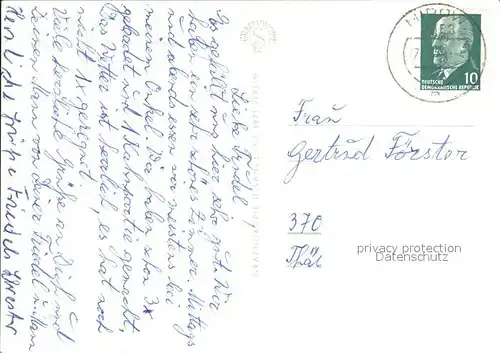 Liebe Friedel!
Es gefällt uns hier sehr gut. Wir
haben ein sehr schönes Zimmer. Mittags
und abends essen wir meistens bei
meinem Onkel. Wir haben schon 3x
gebadet und 1 Kahnpartie gemacht.
Das Wetter ist herrlich, es hat noch
nicht 1x geregnet.
Viele herzliche Grüße an Dich und
Deinen Mann von Deiner Friedel u. Mann
Herzliche Grüße Friedels Schwester
MIRO
DEUTSCHE
DEMOKRATISCHE REPUBLIK
10
Frau
Gertrud Förster
370
Thäl
privacy protection
Datenschutz